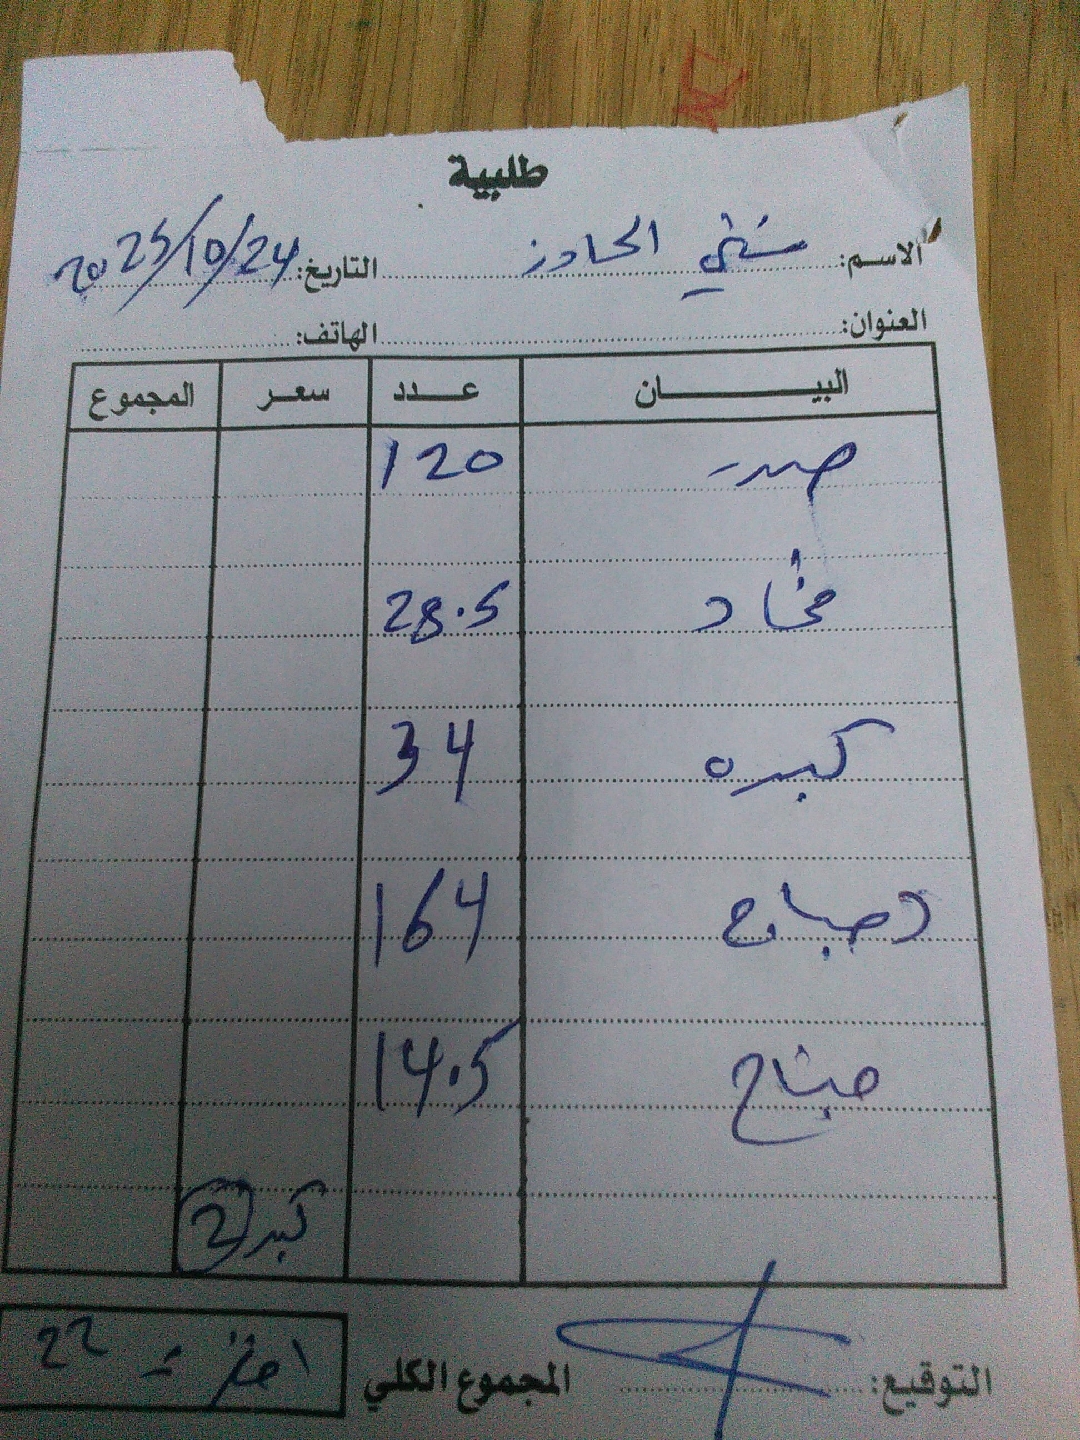 طلبية
الاسم: التاريخ: 2025/10/24
العنوان: الهاتف:
البيان عدد سعر المجموع
صدر 120
فخاد 28.5
كبده 34
دجاج 164
جناح 14.5
كبد 2
التوقيع: المجموع الكلي 22